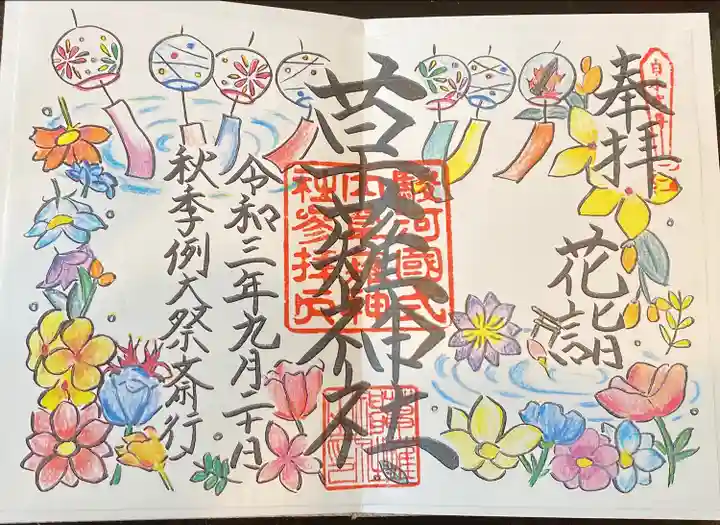 奉拝
花詣
草薙神社
駿河國式
内草薙神
社參拝印
令和三年九月二十日
秋季例大祭斎行